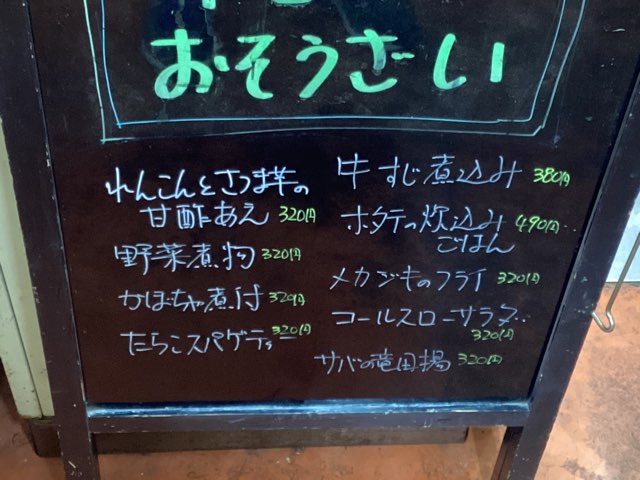 おそうざい
れんこんとさつま芋の
甘酢あえ 320円
野菜煮物 320円
かぼちゃ煮付 320円
たらこスパゲティ 320円
牛すじ煮込み 380円
ホタテの炊込み 490円
ごはん
メカジキのフライ 320円
コールスローサラダ
320円
サバの竜田揚 320円